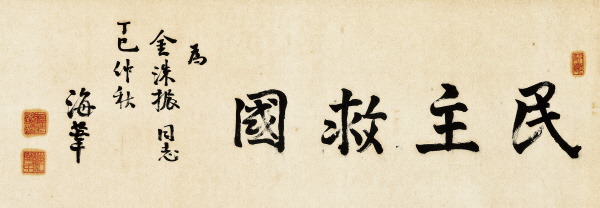 民主救國
為
金洙振 同志
丁巳 仲秋
海葦